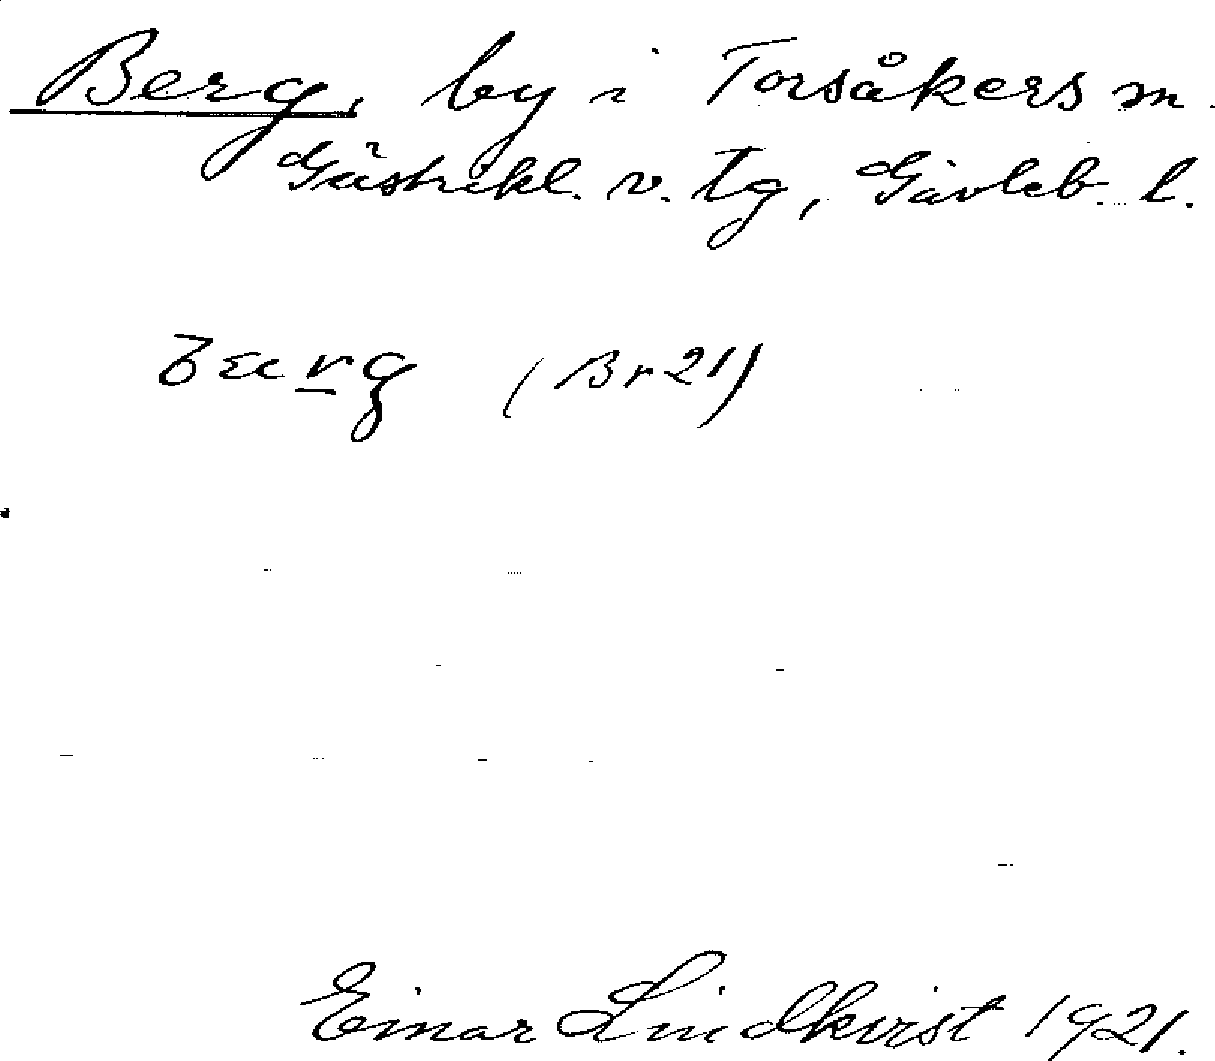 Berg, by i Torsåkers sn.
Gästrikl. v. tg, Gävleb. l.
(Br 21)
Einar Lindkvist 1921.